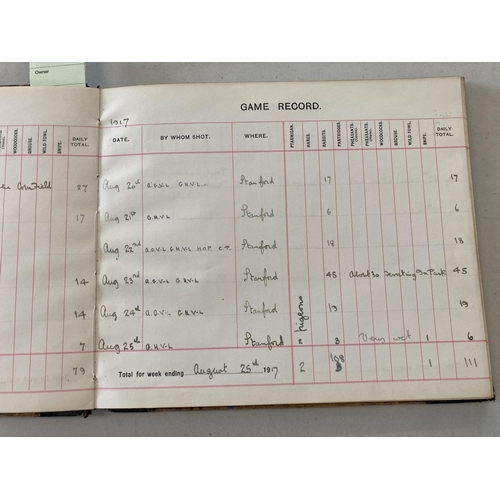 Owner
GAME RECORD.
1917
DATE. BY WHOM SHOT. WHERE. HARES. RABBITS. PARTRIDGES. PHEASANTS. PHEASANTS. WOODCOCKS. GROUSE. WILD FOWL. SNIPE. DAILY TOTAL.
WOODCOCKS. GROUSE. WILD FOWL. SNIPE. DAILY TOTAL.
Cornfield 27
Aug 20th A.G.V-L G.H.V-L Stanford 17 17
17 Aug 21st G.H.V-L Stanford 6 6
Aug 22nd A.G.V-L G.H.V-L H.O.F. C.T. Stanford 18 18
14 Aug 23rd A.G.V-L G.H.V-L Stanford 45 About 30 in Park 45
14 Aug 24th A.G.V-L G.H.V-L Stanford 19 19
pigeons
7 Aug 25th G.H.V-L Stanford 2 3 Very wet 1 6
79 Total for week ending August 25th 1917 2 108 1 111